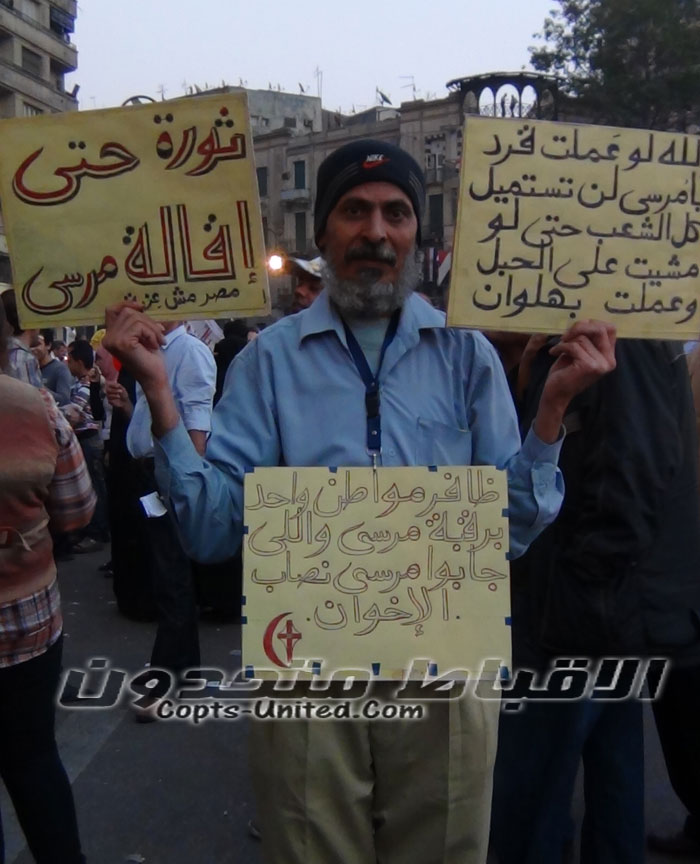 ثورة حتى
إقالة مرسى
مصر مش عزبة
لله لو عملت قرد
يا مرسى لن تستميل
كل الشعب حتى لو
مشيت على الحبل
وعملت بهلوان
NIKE
ظافر مواطن واحد
برقبة مرسى واللى
جابوا مرسى نصاب
الإخوان
الاقباط متحدون
Copts-United.Com